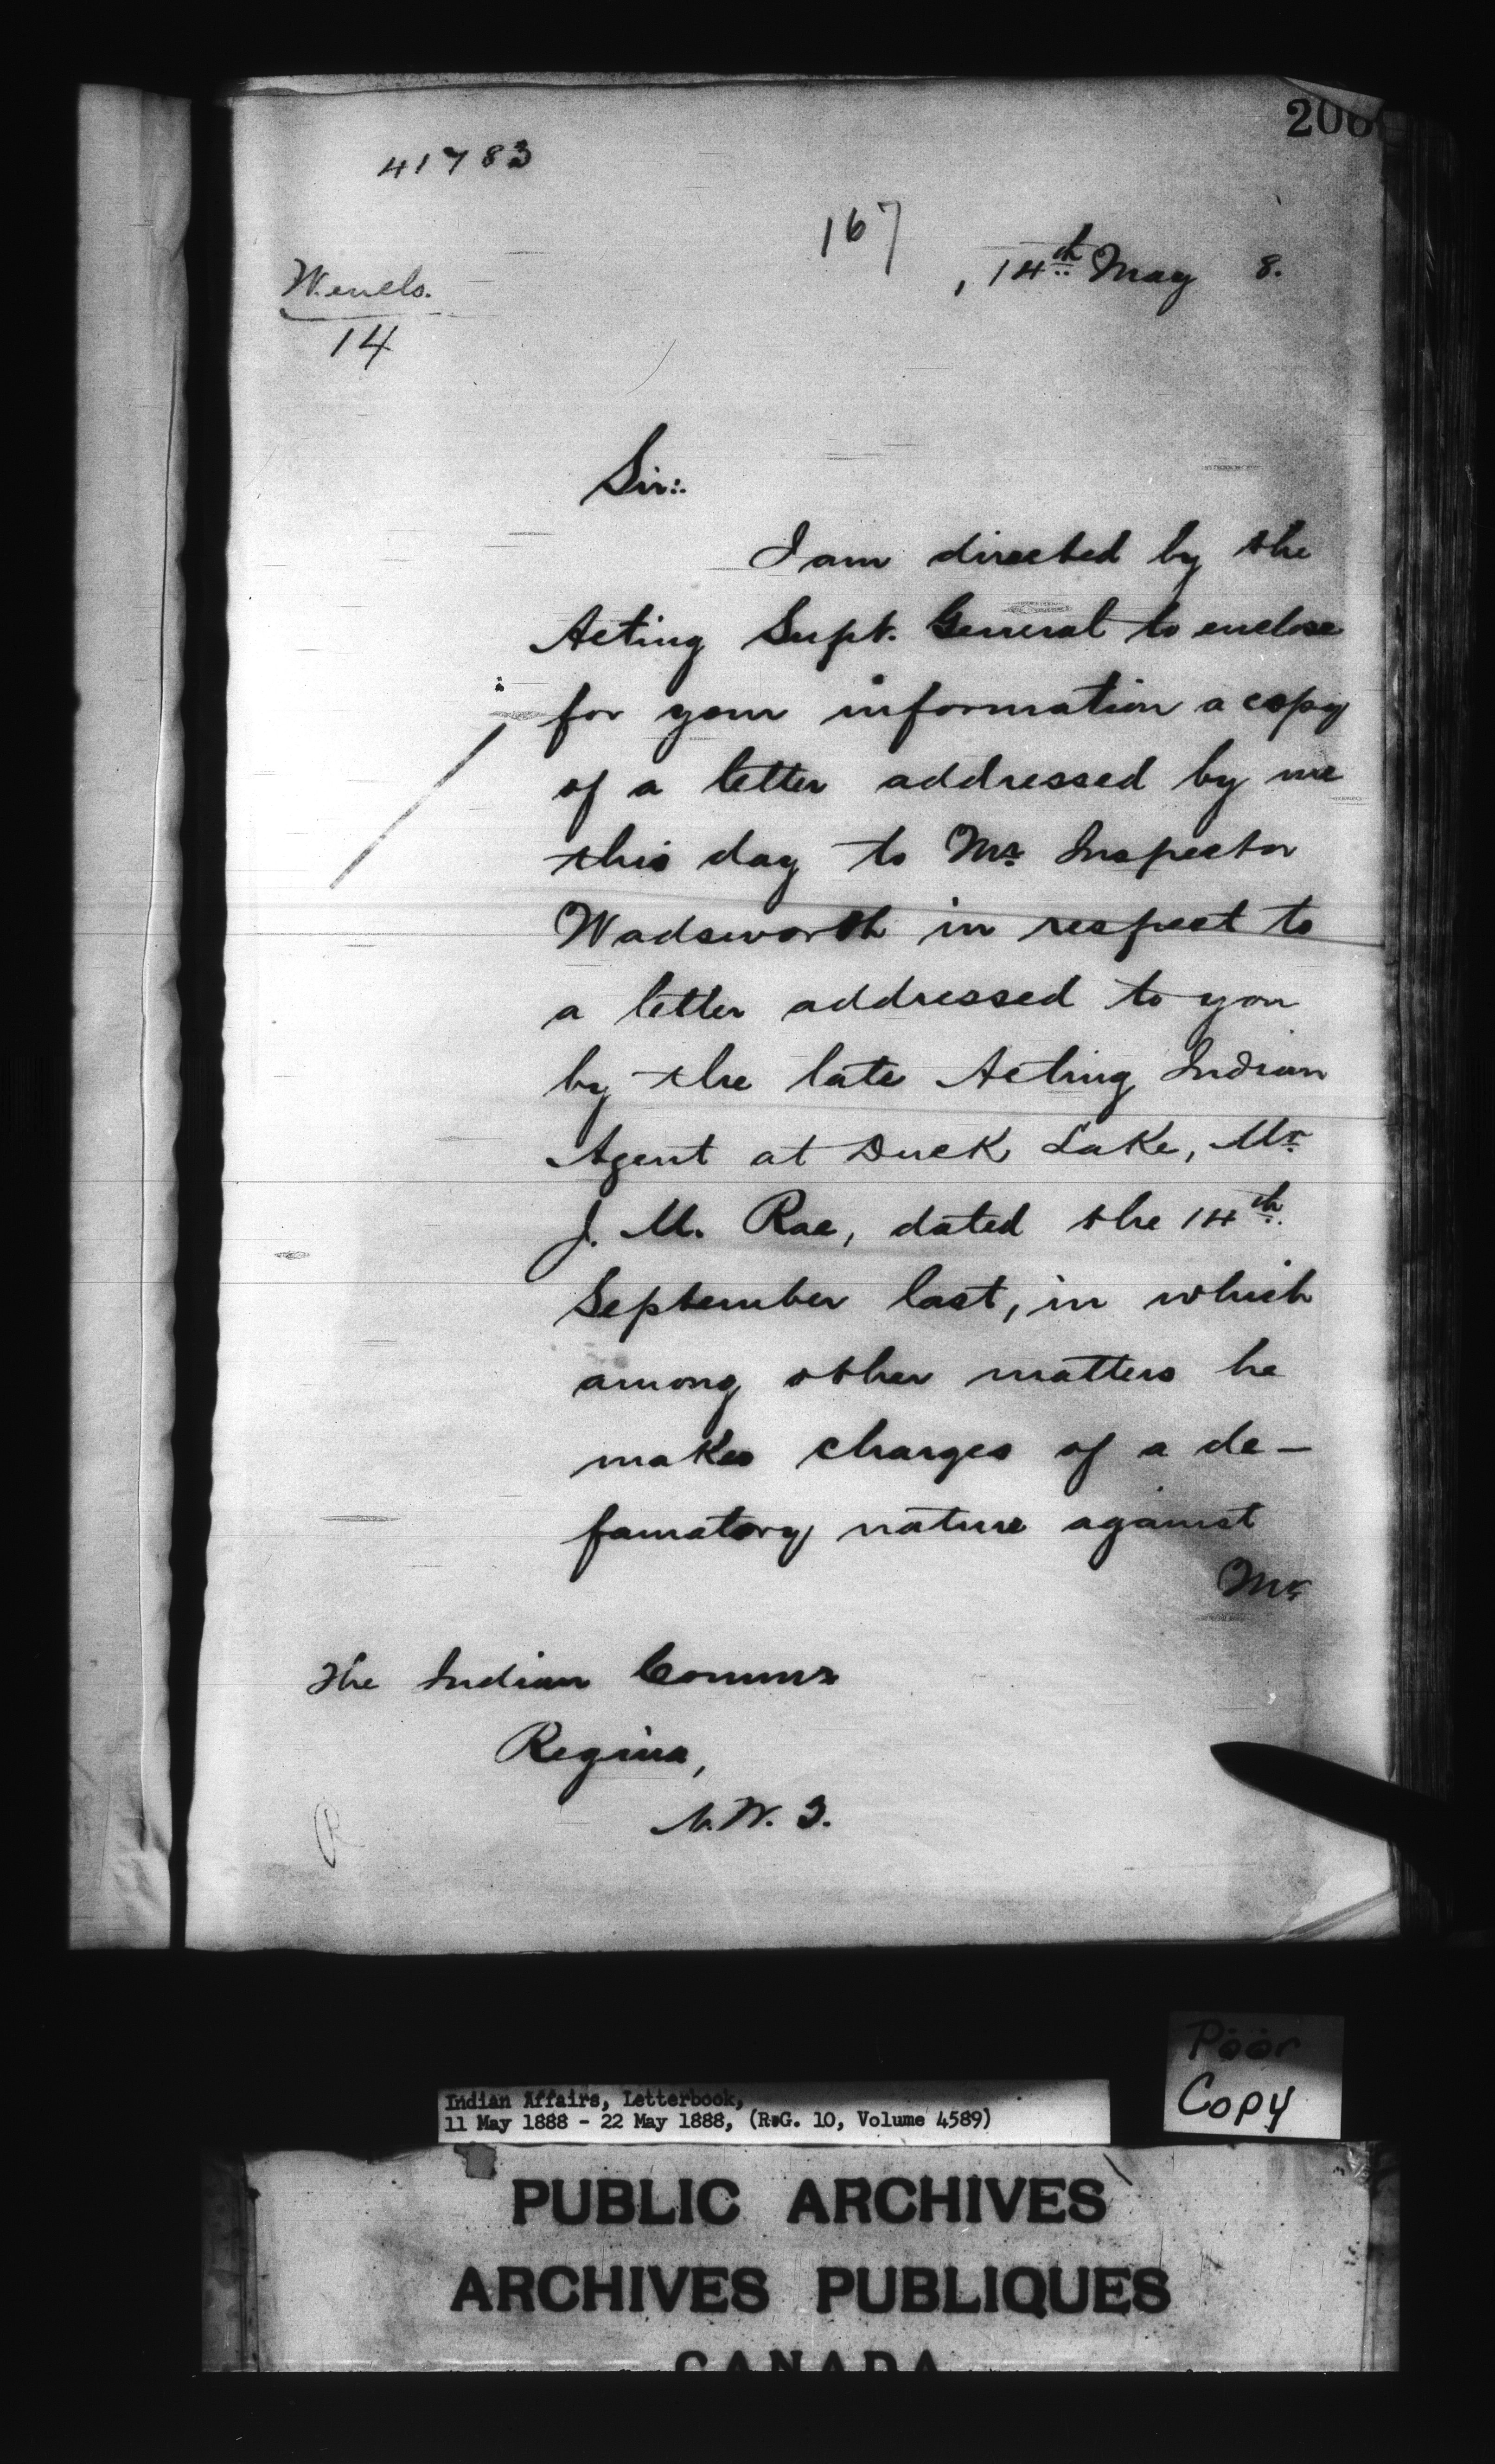 206
41783
167
, 14th May 8.
W. encls.
14
Sir:
I am directed by the
Acting Supt. General to enclose
for your information a copy
of a letter addressed by me
this day to Mr. Inspector
Wadsworth in respect to
a letter addressed to you
by the late Acting Indian
Agent at Duck Lake, Mr.
J. M. Rae, dated the 14th.
September last, in which
among other matters he
makes charges of a de-
famatory nature against
Mr.
The Indian Commr.
Regina,
N.W.T.
Poor
Copy
Indian Affairs, Letterbook,
11 May 1888 - 22 May 1888, (R.G. 10, Volume 4589)
PUBLIC ARCHIVES
ARCHIVES PUBLIQUES
CANADA